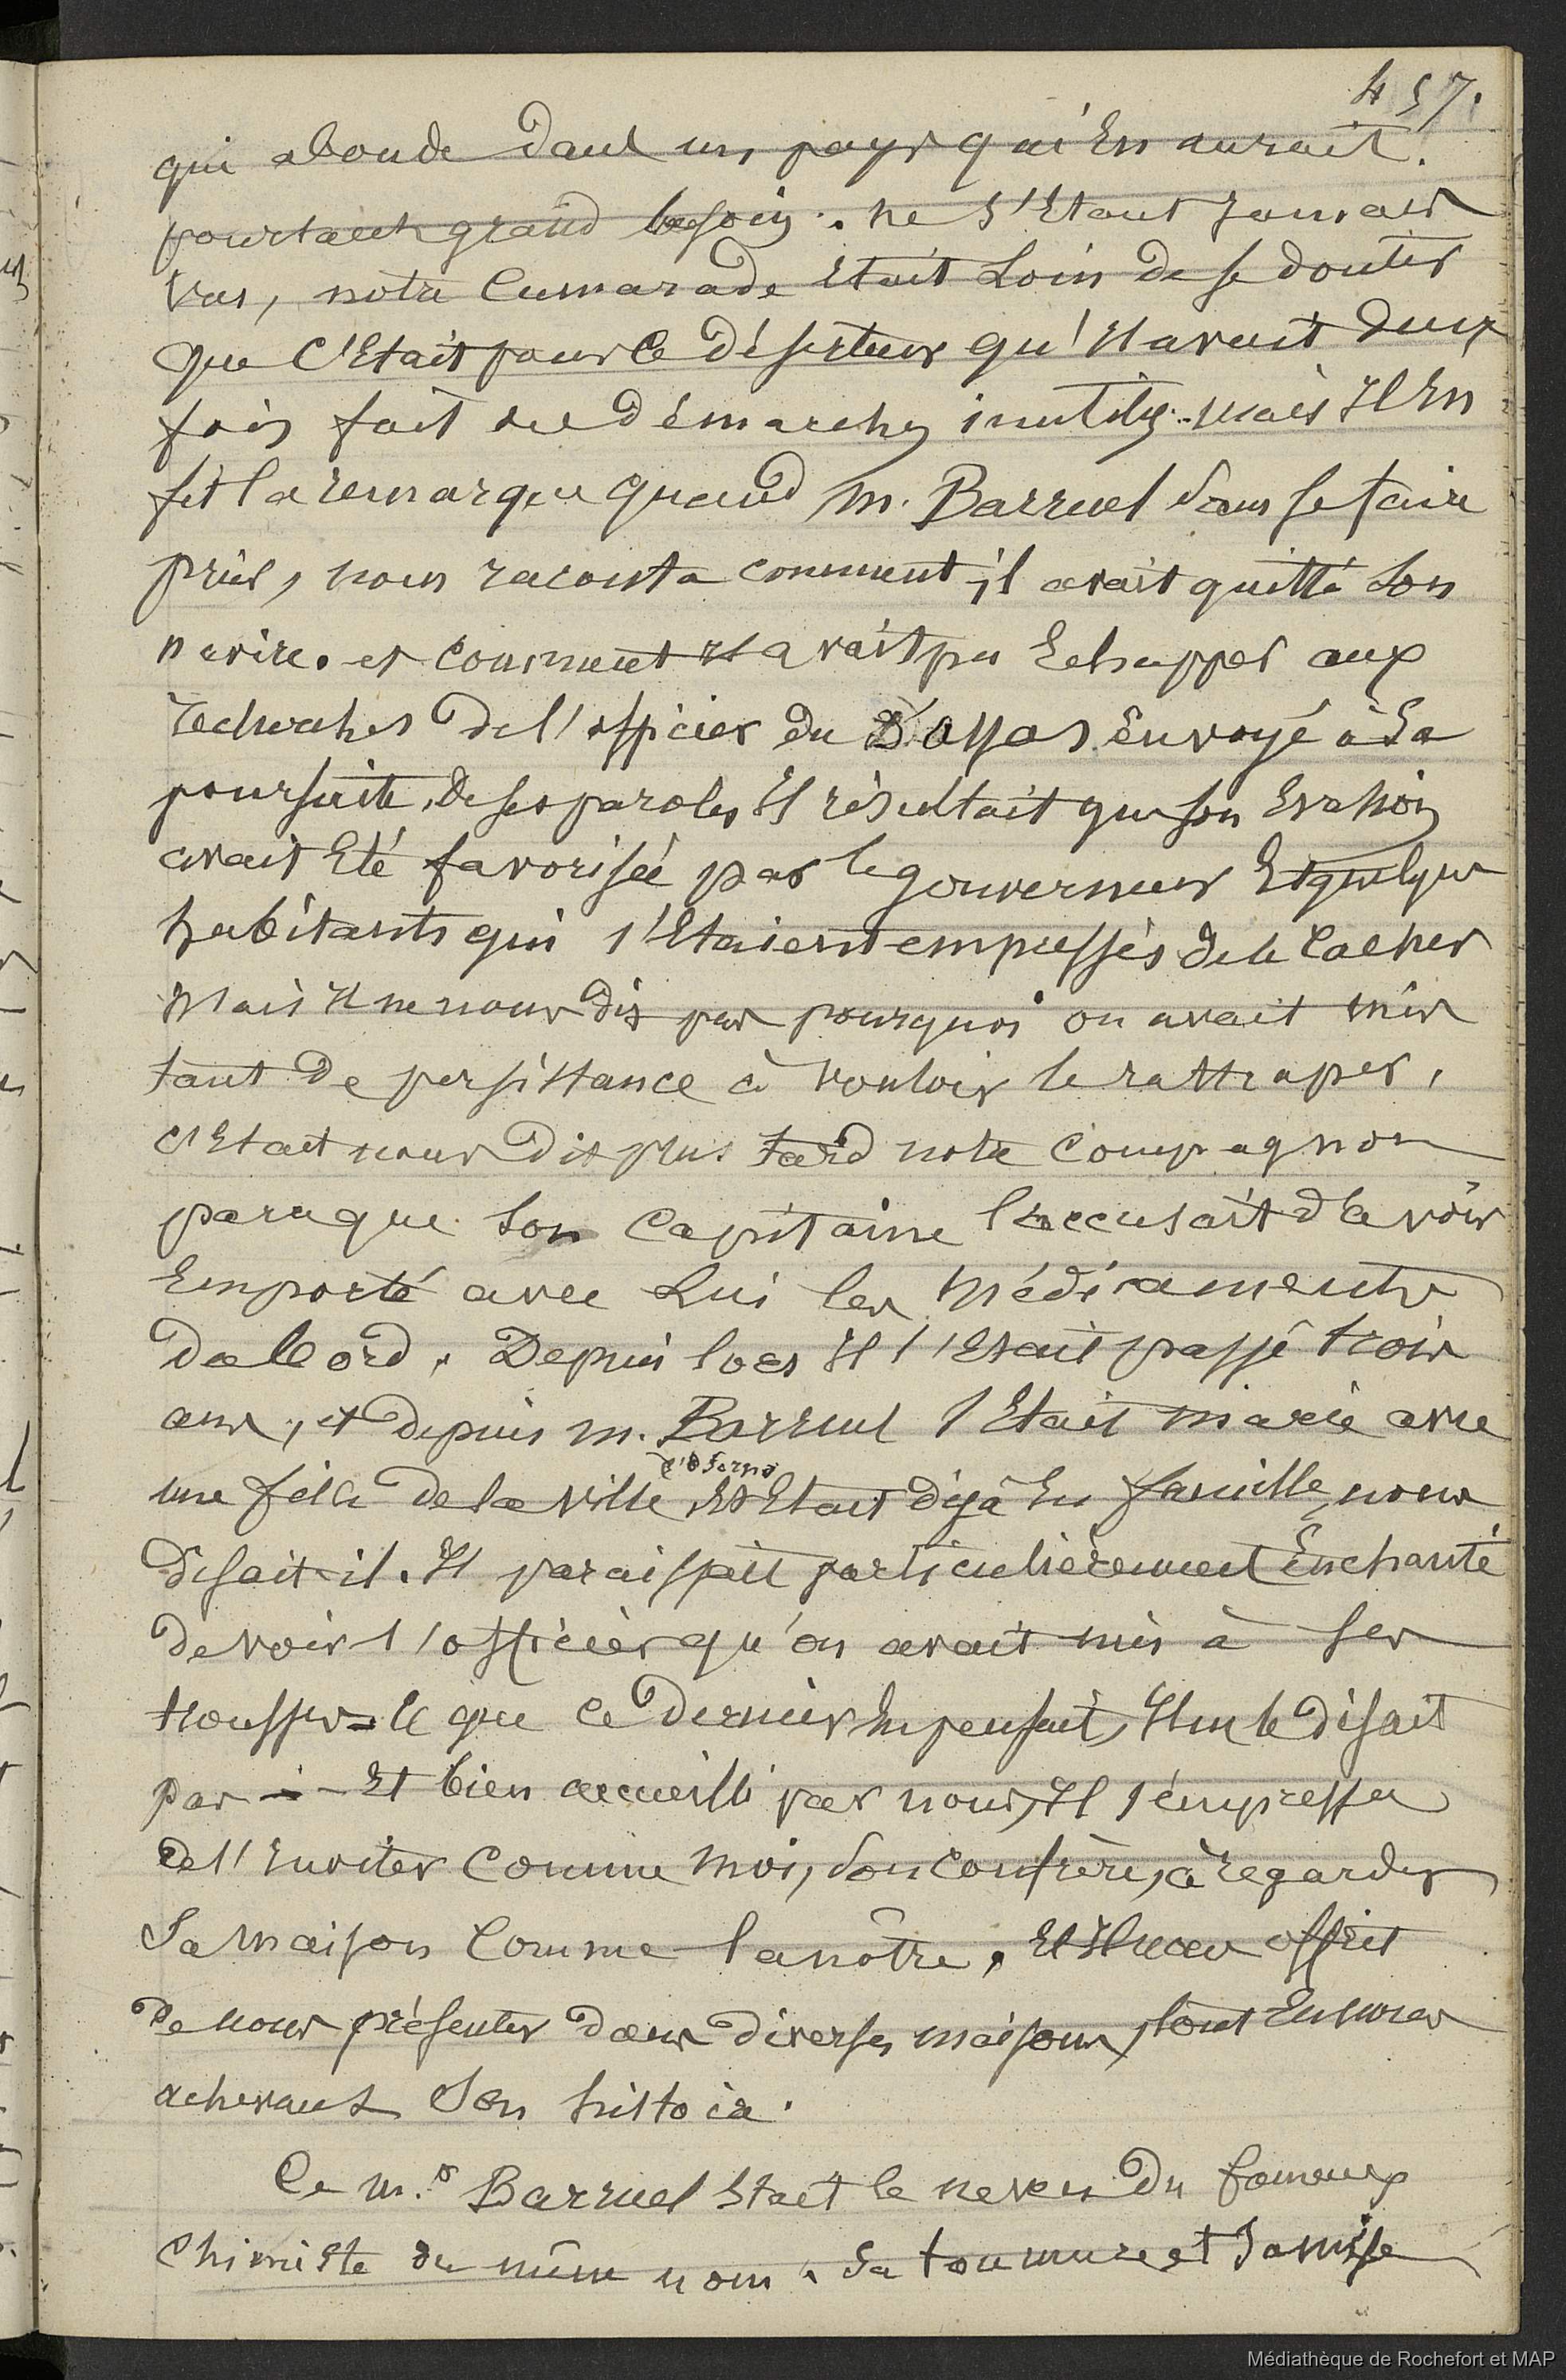 457.
qui abonde dans un pays qui En aurait
pourtant grand besoin. ne s'Etant jamais
vus, notre Camarade était Loin de se douter
que C'Etait pour ce déserteur qu'Il avait deux
fois fait des démarches inutiles. mais Il En
fit la remarque quand M. Barruel sans se faire
prier, nous raconta comment il avait quitté son
navire. et comment Il avait pu Echapper aux
recherches de l'officier du D'Assas Envoyé à Sa
poursuite. De ses paroles Il résultait que son Evasion
avait Eté favorisée par le gouverneur Et quelques
habitants qui s'Etaient empressés de le Cacher
Mais Il ne nous dit pas pourquoi on avait mis
tant de persistance à vouloir le rattraper,
c'Etait nous dit plus tard notre Compagnon
parce que son Capitaine l'accusait d'avoir
Emporté avec Lui les Médicaments
du bord. Depuis lors Il s'Etait passé trois
ans, et depuis M. Barruel s'Etait marié avec
une fille de la ville d'Osorno Et Etait déjà En famille, nous
disait-il. Il paraissait particulièrement Enchanté
de voir l'officier qu'on avait mis à ses
trousses = ce que ce dernier En pensait, Il ne le disait
pas - Et bien accueilli par nous, Il s'empressa
de l'Inviter Comme Moi, son confrère, à regarder
Sa maison Comme la nôtre, Et Il nous offrit
de nous présenter dans diverses maisons, tout En nous
achevant Son histoire.
Ce M.r Barruel Etait le neveu du fameux
Chimiste du même nom. Sa tournure et Sa mise
Médiathèque de Rochefort et MAP